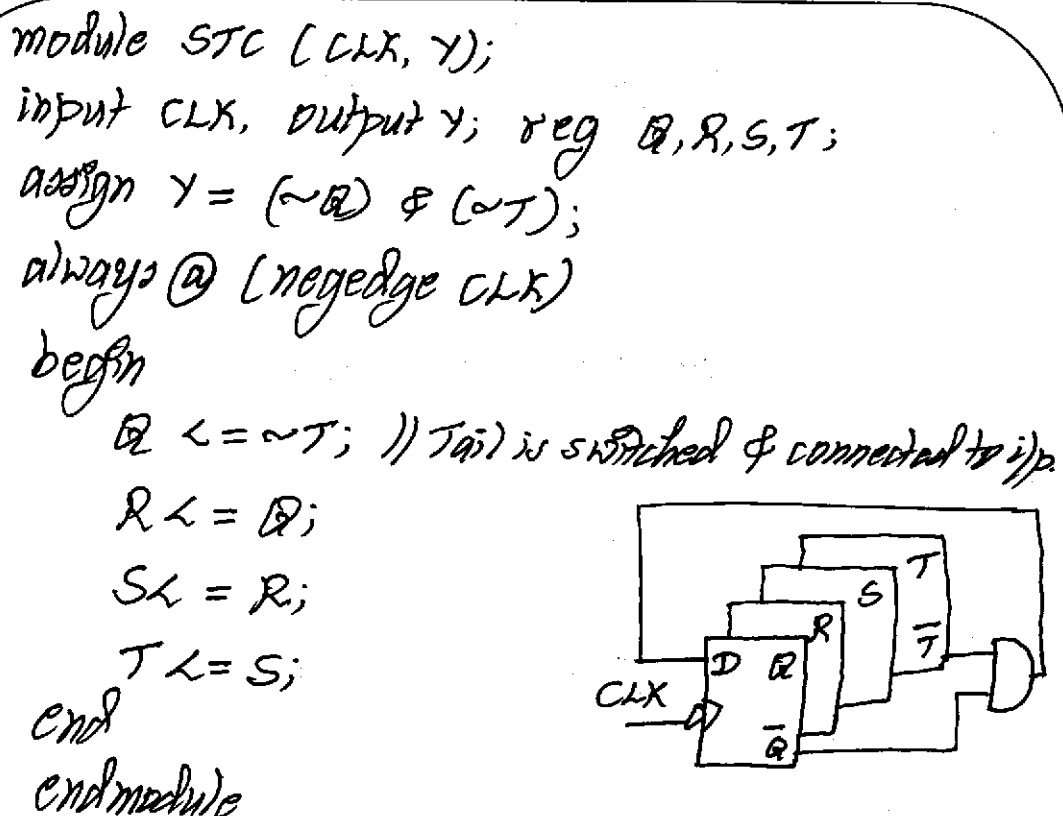 module STC (CLK, Y);
input CLK, output Y; reg Q,R,S,T;
assign Y = (~Q) & (~T);
always @ (negedge CLK)
begin
Q <= ~T; // Tail is switched & connected to i/p.
R <= Q;
S <= R;
T <= S;
end
endmodule
T
S
R
T̅
D Q
CLK
Q̅